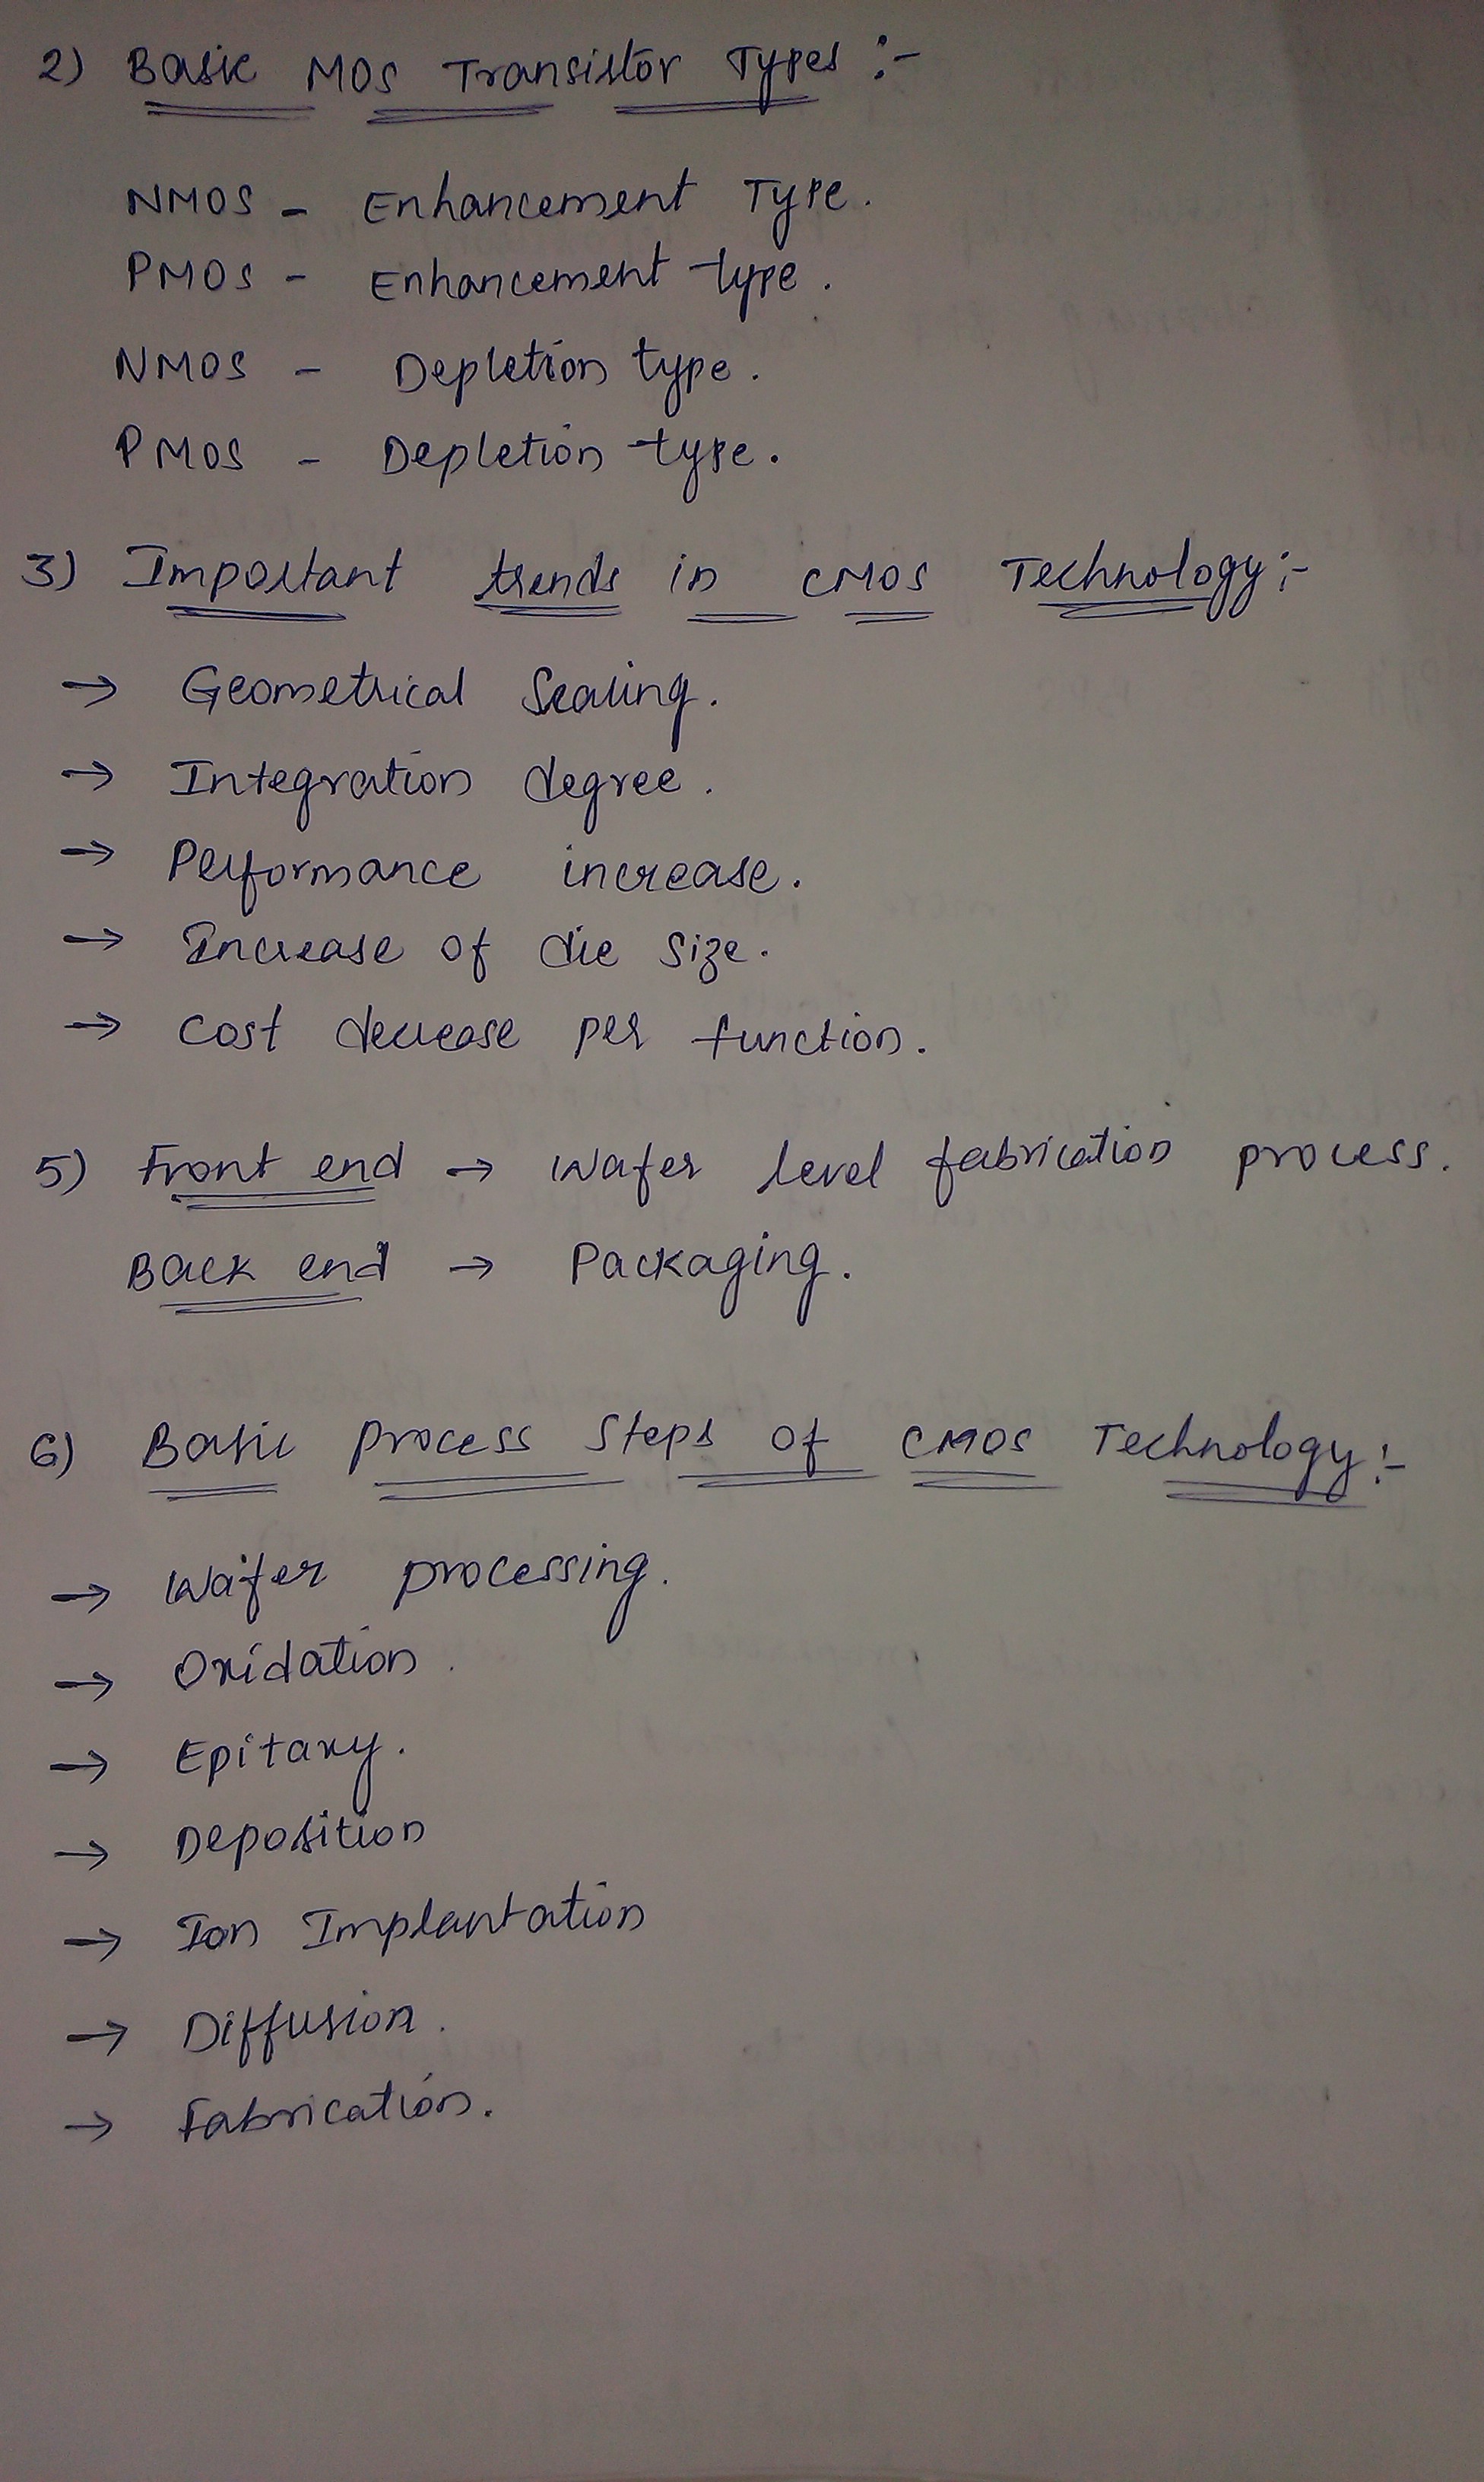 2) Basic MOS Transistor Types :-
NMOS - Enhancement Type.
PMOS - Enhancement type.
NMOS - Depletion type.
PMOS - Depletion type.
3) Important trends in CMOS Technology :-
→ Geometrical Scaling.
→ Integration degree.
→ Performance increase.
→ Increase of die size.
→ Cost decrease per function.
5) Front end → Wafer level fabrication process.
Back end → Packaging.
6) Basic process steps of CMOS Technology :-
→ Wafer processing.
→ Oxidation.
→ Epitaxy.
→ Deposition
→ Ion Implantation
→ Diffusion.
→ Fabrication.